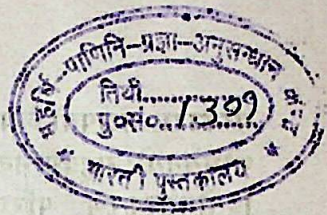 महर्षि-पाणिनि-प्रज्ञा-अनुसन्धान
तिथी..............
पु०सं०..1309........
* भारती पुस्तकालय *